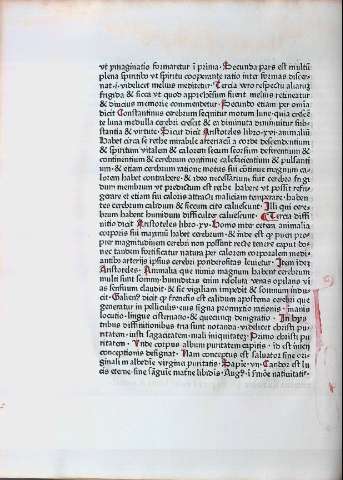 vt ymaginatio formaretur ī prima · Secunda pars est multū
plena spiritibo vt spiritu cooperante ratio inter formas discer-
nat · s · videlicet melius meditetur · Tercia vero respectu aliarꝫ
frigida & sicca vt quod apprehēsum fuerit melius retineatur
& diucius memorie commendetur · Secundo etiam per omīa
dicit Constantinus cerebrum sequitur motum lune · quia crescē
te luna medulla cerebri crescit & ea diminuta diminuitur sub-
stantia & virtute · Dicit dicit Aristoteles libro · xvi · animaliū
habet circa se rethe mirabile arteriaꝫ a corde descendentium
& spiritum vitalem & calorem secum deorsum deferentium &
continentium & cerebrum continue calefacientium & pulsanti
um · & etiam cerebrum ratione motus sui cōtinue magnum ca-
lorem habet contrahere · & ideo necessarium fuit cerebro frigi
dum membrum vt predictum est rethe habere vt possit refri-
gerare et etiam sui calorē attracti maliciam temperare · haben-
tes cerebrum calidum & siccum cito caluescunt · Illi qui cere-
brum habent humidum difficulter caluescunt · Tercia diffi
nitio dicit Aristoteles libro · xv · Homo inter cetera animalia
corporis sui magnum habet cerebrum · & inde est qꝫ pueri prop
ter magnitudinem cerebri non possunt recte tenere caput do-
nec tandem fortificatur natura per calorem corporalem medi-
antibo arterijs ipsius cerebri ponderositas leuietur · Item idē
Aristoteles · Animalia que nimis magnum habent cerebrum
multū sunt somni · humiditas enim resoluta venas opilans vi
as sensuum claudit · & sic vigiliam impedit & somnum indu-
cit · Galienꝰ dicit qꝫ frenesis est calidum apostema cerebri que
generatur in pelliculis · cuius signa promtitudo rationis · inanis
locutio · lingue extensatio · & quecunqꝫ denigratio · In hijs
tribus diffinitionibus tria sunt notanda · videlicet christi pu-
ritatem · iusti sagacitatem · mali iniquitatem · Primo christi pu
ritatem · Unde corpus album puritatem capitis · id est iuteri
conceptionis designat · Nam conceptus est saluator sine ori-
ginali in albedine virginee puritatis · Sapiē · vii · Candor est lu
cis eterne · sine sāguīe matrne libidīs · Augꝰ · ī smōe natiuitatis ·